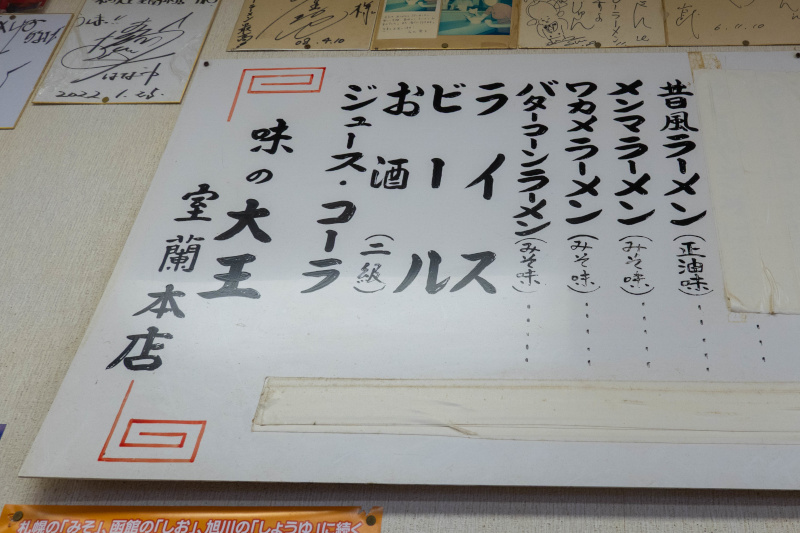 昔風ラーメン(正油味)・・・・
メンマラーメン(みそ味)・・・・
ワカメラーメン(みそ味)・・・・
バターコーンラーメン(みそ味)・・・・
ライス
ビール
お酒(二級)
ジュース・コーラ
味の大王
室蘭本店
2022.1.25.
様
6.11.10
札幌の「みそ」、函館の「しお」、旭川の「しょうゆ」に続く